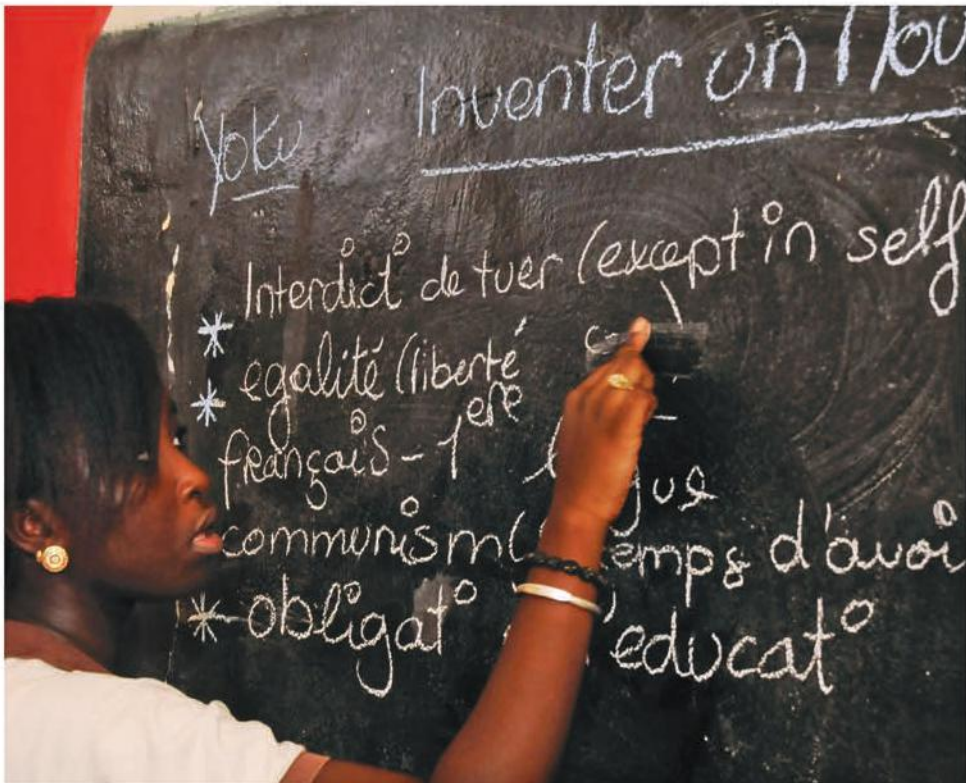 Yoku Inventer un Nou
* Interdict° de tuer (except in self
* egalité (liberté
français - 1ere
communism temps d'avoi
* obligat° l'educat°